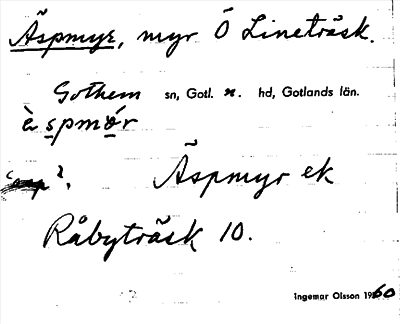 Äspmyr, myr Ö Lineträsk.
Gothem sn, Gotl. n. hd, Gotlands län.
è spmór
?. Äspmyr ek
Råbyträsk 10.
Ingemar Olsson 1960